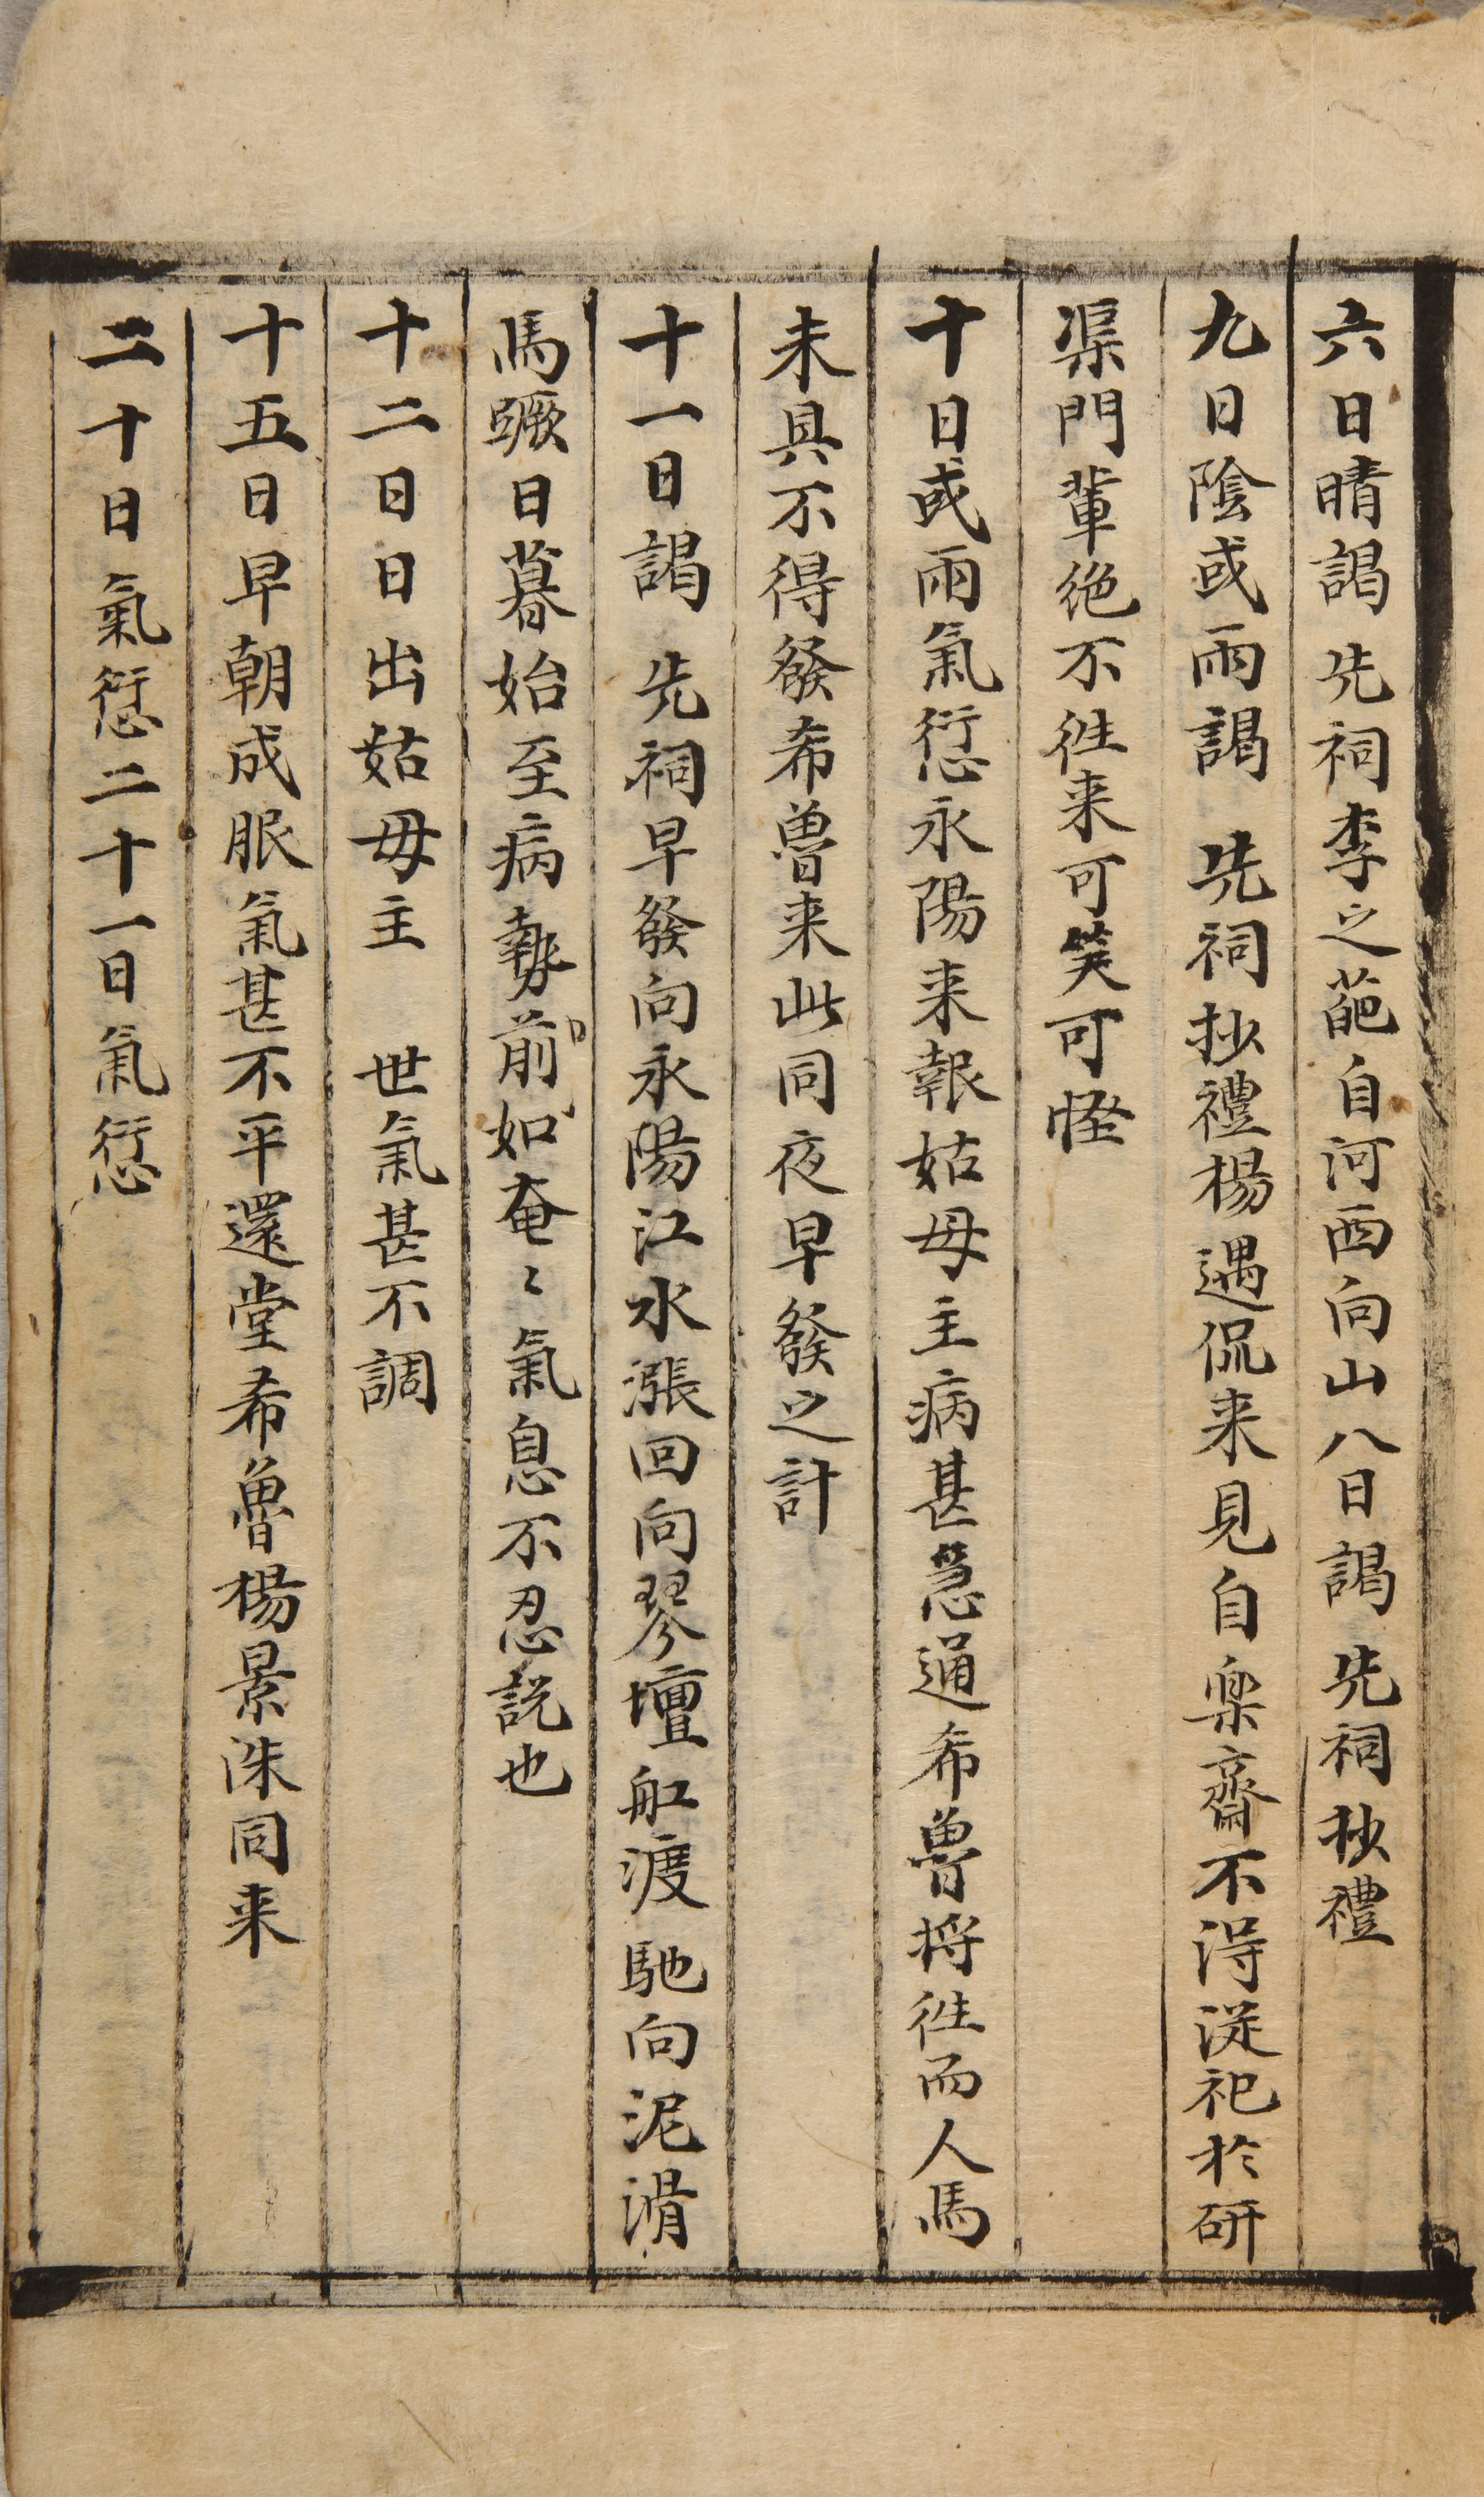 六日晴謁 先祠李之葩自河西向山八日謁 先祠抄禮
九日陰或雨謁 先祠抄禮楊遇侃来見自樂齋不得從祀於研
渠門輩絶不徃来可笑可怪
十日或雨氣愆永陽来報姑母主病甚急通希魯将徃而人馬
未具不得發希魯来此同夜早發之計
十一日謁 先祠早發向永陽江水漲回向琴壇舡渡馳向泥滑
馬蹶日暮始至病勢前如奄〻氣息不忍説也
十二日日出姑母主 世氣甚不調
十五日早朝成服氣甚不平還堂希魯楊景洙同来
二十日氣愆二十一日氣愆